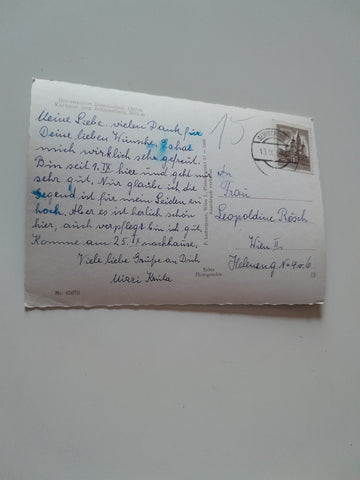 Meine Liebe, vielen Dank für
Deine lieben Wünsche. Es hat
mich wirklich sehr gefreut.
Bin seit 1. IX hier und geht mir
sehr gut. Nur glaube ich die
Gegend ist für mein Leiden zu
hoch. Aber es ist herlich schön
hier, auch verpflegt bin ich gut,
Komme am 25. IX nachhause,
Viele liebe Grüße an Dich
Mizzi
15
An
Frau
Leopoldine Rösch
Wien II.
Heleneng No 4
Echte
Photographie
Nr. 45672